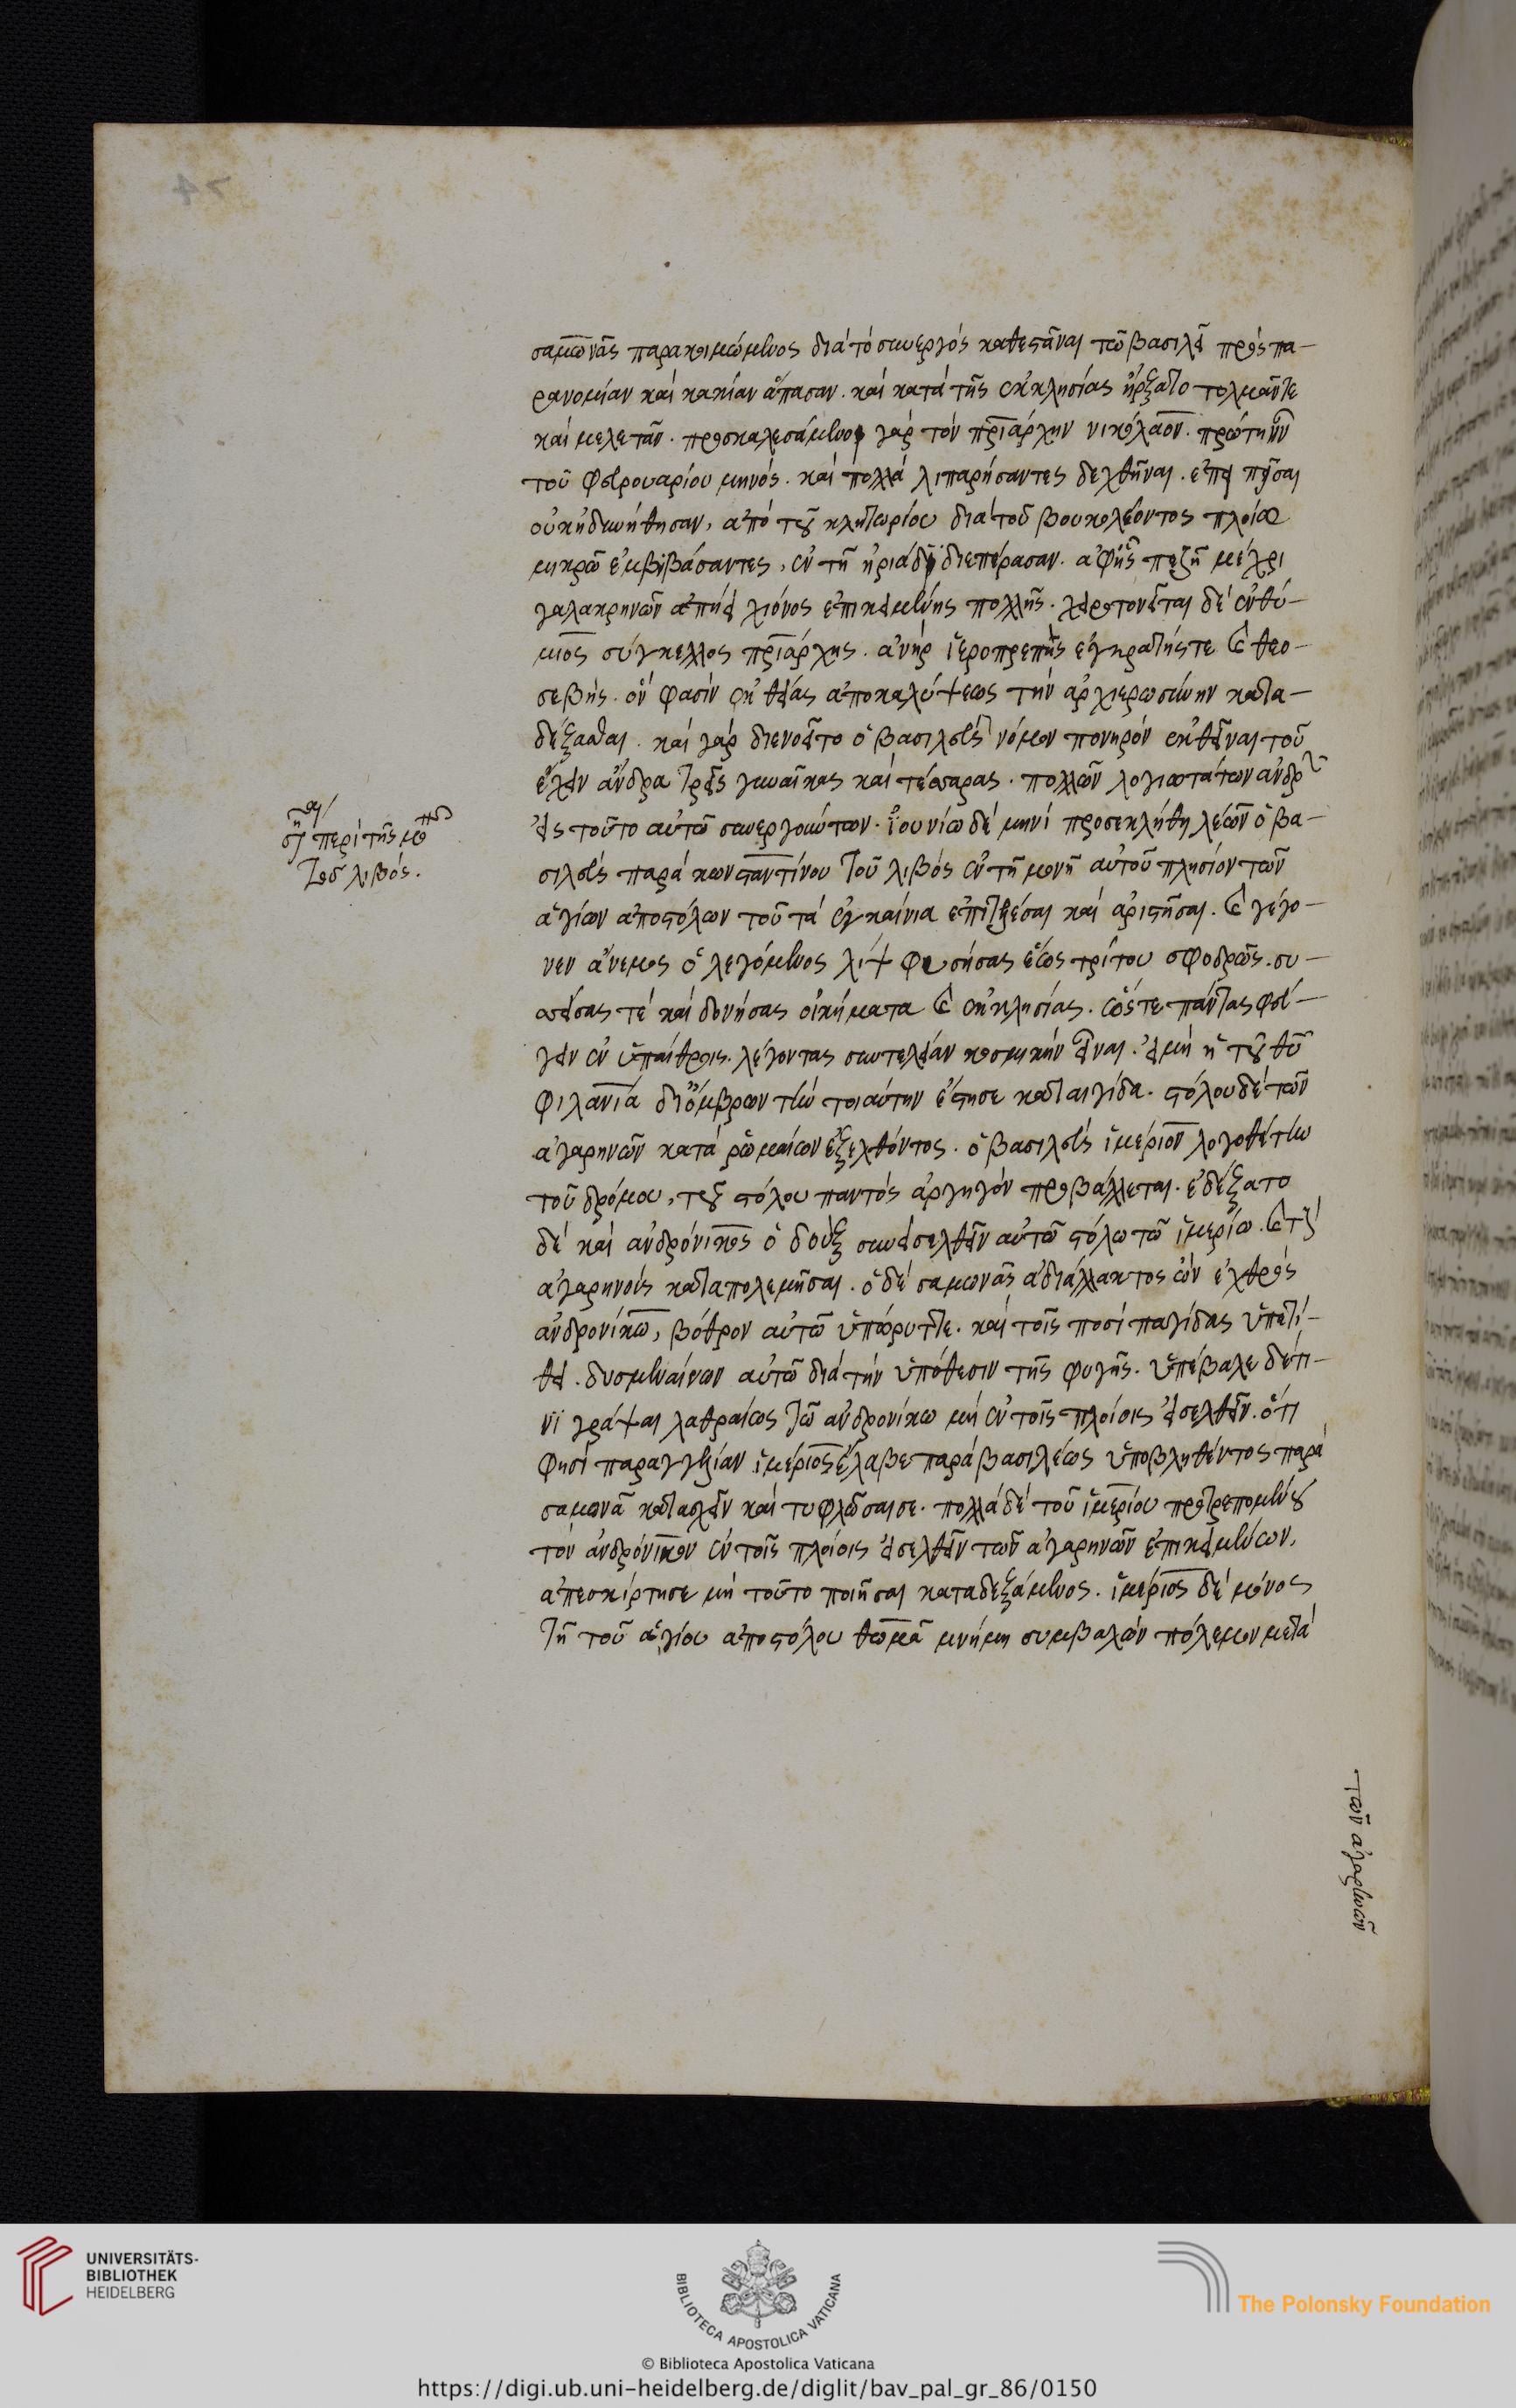 σαμωνᾶς παρακοιμώμενος διὰ τὸ συνεργὸς καθεστᾶναι τῶ βασιλεῖ πρὸς πα-
ρανομίαν καὶ κακίαν ἅπασαν. καὶ κατὰ τῆς ἐκκλησίας ἤρξατο τολμᾶν τε
καὶ μελετᾶν. προσκαλεσάμενοι γὰρ τὸν πριάρχην νικόλαον. πρώτην
τοῦ φευρουαρίου μηνός. καὶ πολλὰ λιπαρήσαντες δεχθῆναι.
οὐκ ἠδυνήθησαν, ἀπὸ τοῦ κλητωρίου διὰ τοῦ βουκολέοντος πλοίω
μικρῶ ἐμβιβάσαντες, ἐν τῆ ἡρία διεπέρασαν. ἀφ' ἧς πεζῆ μέχρι
γαλακρηνῶν ἀπήει χιόνος ἐπικειμένης πολλῆς. χειροτονεῖται δὲ εὐθύ-
μιος σύγκελλος πριάρχης. ἀνὴρ ἱεροπρεπὴς ἐγκρατής τε καὶ θεο-
σεβής. ὅν φασὶν ἐκ θείας ἀποκαλύψεως τὴν ἀρχιερωσύνην κατα-
δέξασθαι. καὶ γὰρ διενοεῖτο ὁ βασιλεὺς νόμον πονηρὸν ἐκθεῖναι τοῦ
ἔχειν ἄνδρα τρεῖς γυναῖκας καὶ τέσσαρας. πολλῶν λογιωτάτων ἀνδρῶν
εἰς τοῦτο αὐτῶ συνεργούντων. ἰουνίω δὲ μηνὶ προσεκλήθη λέων ὁ βα-
σιλεὺς παρὰ κωνσταντίνου τοῦ λιβὸς ἐν τῆ μονῆ αὐτοῦ πλησίον τῶν
ἁγίων ἀποστόλων τοῦ τὰ ἐγκαίνια ἐπιτελέσαι καὶ ἀριστῆσαι. καὶ γέγο-
νεν ἄνεμος ὁ λεγόμενος λὶψ φυσήσας ἕως τρίτου σφοδρῶς. συ-
σείσας τὲ καὶ δονήσας οἰκήματα καὶ ἐκκλησίας. ὥστε πάντας φεύ-
γειν ἐν ὑπαίθροις. λέγοντας συντέλειαν κοσμικὴν εἶναι. εἰ μὴ ἡ τοῦ θυ
φιλανία δι' ὄμβρων τὴν τοιαύτην ἔστησε καταιγίδα. στόλου δὲ τῶν
ἀγαρηνῶν κατὰ ῥωμαίων ἐξελθόντος. ὁ βασιλεὺς ἱμέριον λογοθέτην
τοῦ δρόμου, τοῦ στόλου παντὸς ἀρχηγὸν προβάλλεται. ἐδέξατο
δὲ καὶ ἀνδρόνικος ὁ δοὺξ συνεισελθεῖν αὐτῶ στόλω τῶ ἱμερίω. καὶ τοὺς
ἀγαρηνοὺς καταπολεμῆσαι. ὁ δὲ σαμωνᾶς ἀδιάλλακτος ὢν ἐχθρὸς
ἀνδρονίκω, βόθρον αὐτῶ ὑπώρυττε. καὶ τοῖς ποσὶ παγίδας ὑπετί-
θει. δυσμεναίνων αὐτῶ διὰ τὴν ὑπόθεσιν τῆς φυγῆς. ὑπέβαλε δέ τι-
νι γράψαι λαθραίως τῶ ἀνδρονίκω μὴ ἐν τοῖς πλοίοις εἰσελθεῖν. ὅτι
φησὶ παραγγελίαν ἱμέριος ἔλαβε παρὰ βασιλέως ὑποβληθέντος παρὰ
σαμωνᾶ κατασχεῖν καὶ τυφλῶσαι σε. πολλὰ δὲ τοῦ ἱμερίου προτρεπομένου
τὸν ἀνδρόνικον ἐν τοῖς πλοίοις εἰσελθεῖν τῶν ἀγαρηνῶν ἐπικειμένων,
ἀπεσκίρτησε μὴ τοῦτο ποιῆσαι καταδεξάμενος. ἱμέριος δὲ μόνος
τῆ τοῦ ἁγίου ἀποστόλου θωμᾶ μνήμη συμβαλὼν πόλεμον μετὰ
περὶ τῆς μο
τοῦ λιβός.
τῶν ἀγαρηνῶν
74
UNIVERSITÄTS-
BIBLIOTHEK
HEIDELBERG
BIBLIOTECA APOSTOLICA VATICANA
© Biblioteca Apostolica Vaticana
The Polonsky Foundation
https://digi.ub.uni-heidelberg.de/diglit/bav_pal_gr_86/0150